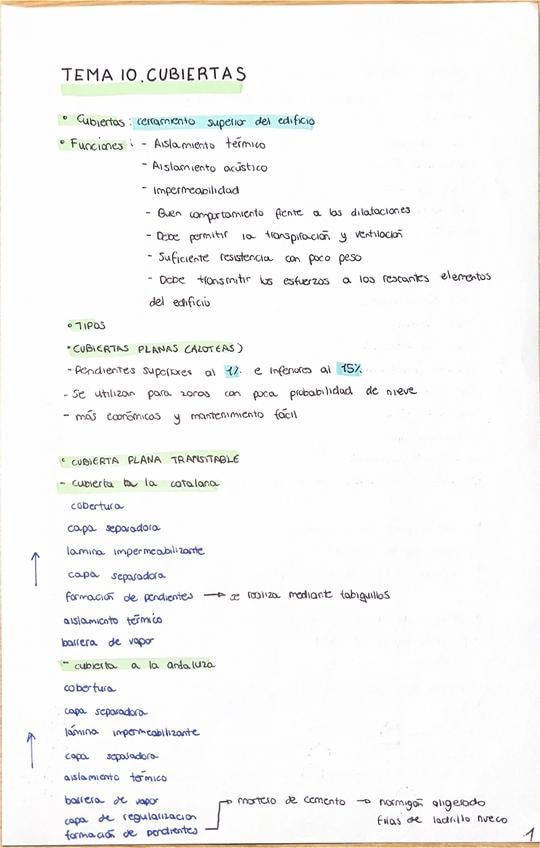 TEMA 10. CUBIERTAS
• Cubiertas: cerramiento superior del edificio
• Funciones: - Aislamiento térmico
- Aislamiento acústico
- Impermeabilidad
- Buen comportamiento frente a las dilataciones
- Debe permitir la transpiración y ventilación
- Suficiente resistencia con poco peso
- Debe transmitir los esfuerzos a los rescantes elementos
del edificio
• TIPOS
• CUBIERTAS PLANAS (AZOTEAS)
- Pendientes superiores al 1% e inferiores al 15%
- Se utilizan para zonas con poca probabilidad de nieve
- más económicas y mantenimiento fácil
• CUBIERTA PLANA TRANSITABLE
- cubierta a la catalana
cobertura
capa separadora
lamina impermeabilizante
↑ capa separadora
formación de pendientes → se realiza mediante tabiquillos
aislamiento térmico
barrera de vapor
- cubierta a la andaluza
cobertura
capa separadora
lámina impermeabilizante
↑ capa separadora
aislamiento térmico
barrera de vapor → mortero de cemento → hormigón aligerado
capa de regularización filas de ladrillo hueco
formación de pendientes
1